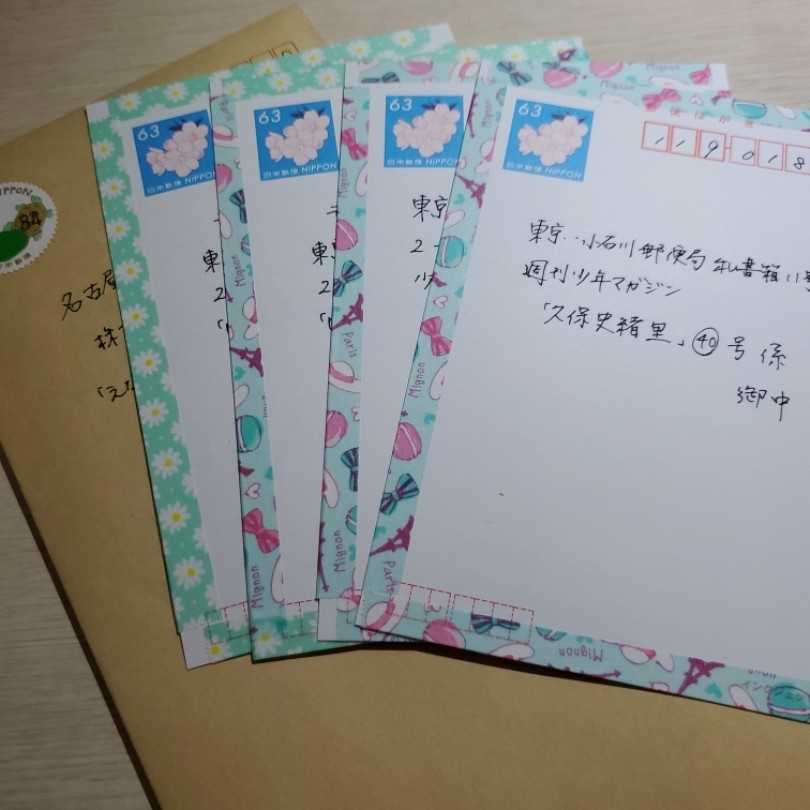 NIPPON
84
名古屋
63
日本郵便 NIPPON
東
2
63
日本郵便 NIPPON
東
2
63
日本郵便 NIPPON
東京
2-
63
日本郵便 NIPPON
郵便はがき
119-018
東京 小石川郵便局 私書箱11号
週刊少年マガジン
「久保史緒里」㊵号係
御中
Mignon
Mignon
Paris
Mignon
Paris
Mignon